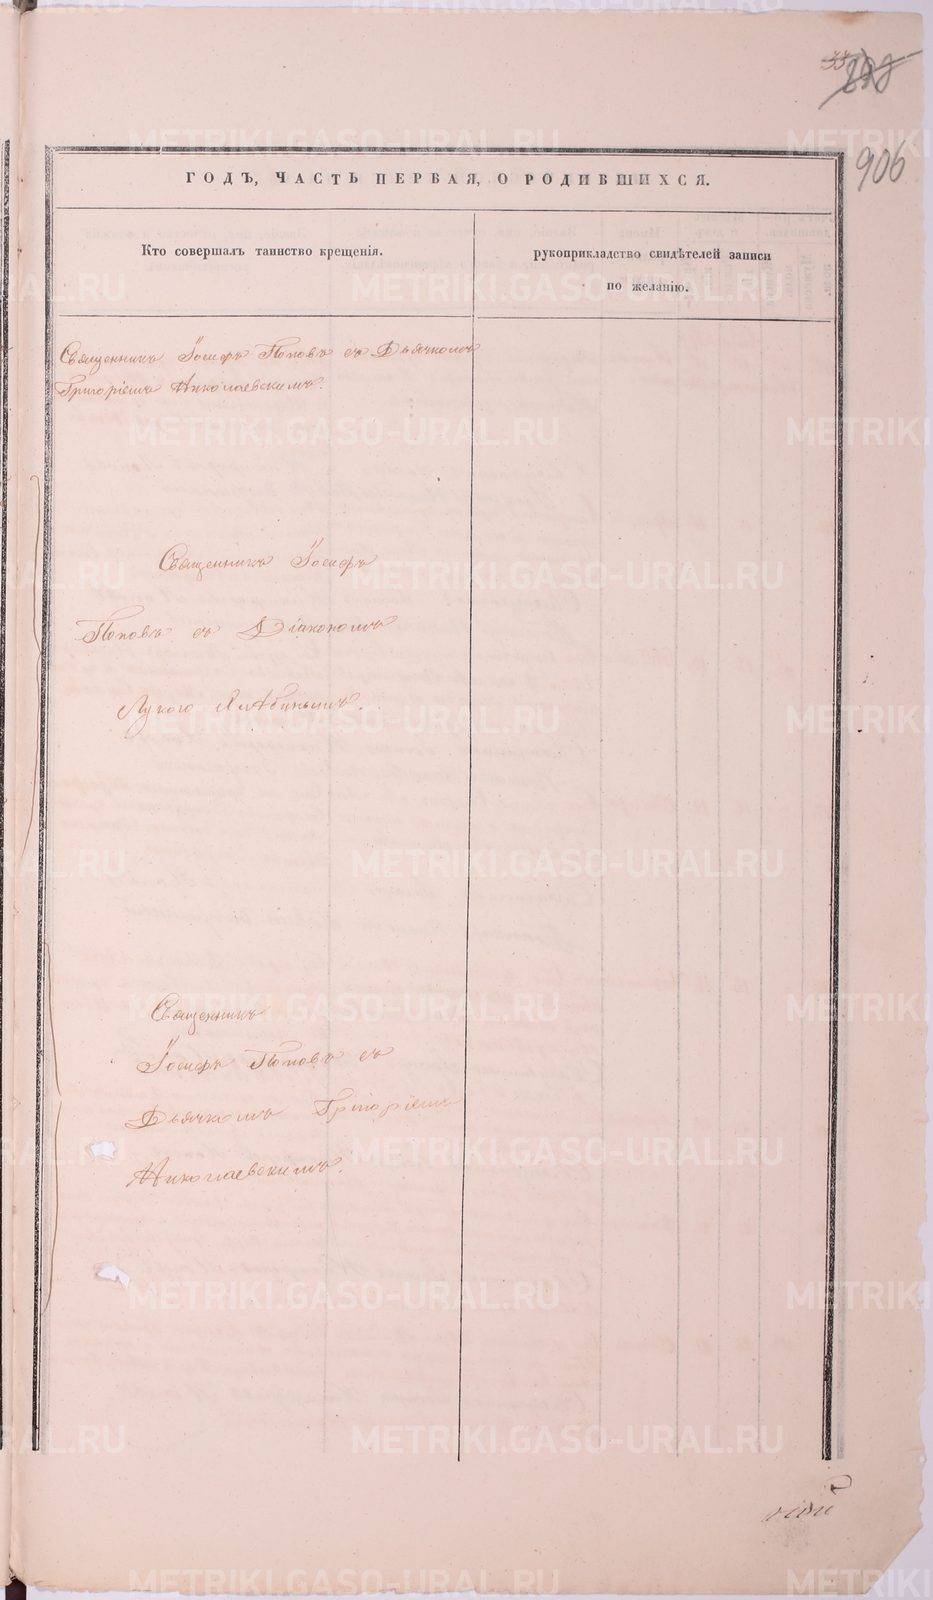 906
ГОДЪ, ЧАСТЬ ПЕРВАЯ, О РОДИВШИХСЯ.
Кто совершалъ таинство крещенія.
рукоприкладство свидѣтелей записи
по желанію.
Священникъ Іосифъ Поповъ съ Дьячкомъ
Григоріемъ Николаевскимъ.
Священникъ Іосифъ
Поповъ съ Діакономъ
Лукою
Священникъ
Іосифъ Поповъ съ
Дьячкомъ Григоріемъ
Николаевскимъ.
METRIKI.GASO-URAL.RU